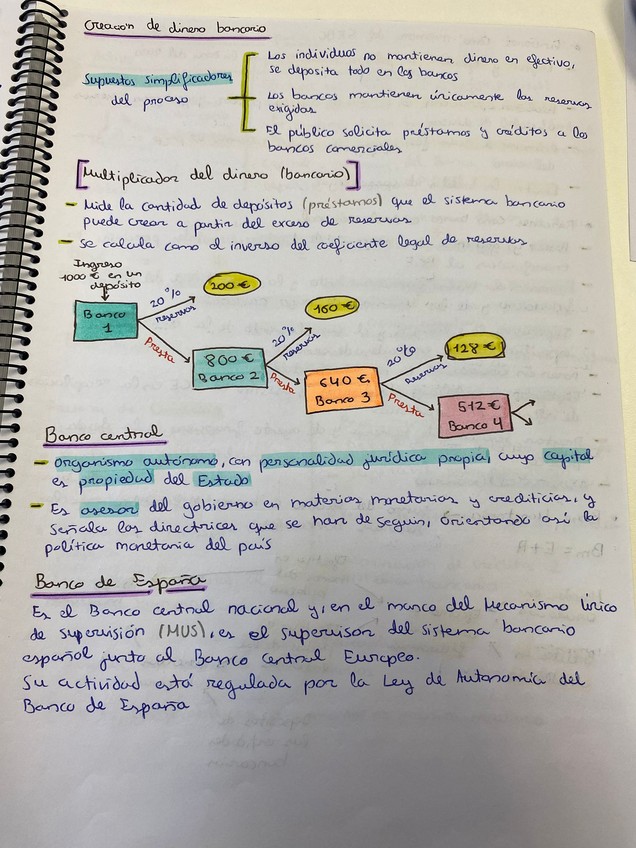 Creación de dinero bancario
Los individuos no mantienen dinero en efectivo,
se deposita todo en los bancos
Supuestos simplificadores
del proceso
Los bancos mantienen únicamente las reservas
exigidas
El público solicita préstamos y créditos a los
bancos comerciales
[Multiplicador del dinero (bancario)]
- Mide la cantidad de depósitos (préstamos) que el sistema bancario
puede crear a partir del exceso de reservas
- Se calcula como el inverso del coeficiente legal de reservas
Ingreso
1000 € en un
depósito
Banco
1
20%
reservas
200 €
Presta
800 €
Banco 2
20%
reservas
160 €
Presta
640 €
Banco 3
20%
reservas
128 €
Presta
512 €
Banco 4
Banco central
- Organismo autónomo, con personalidad jurídica propia, cuyo capital
es propiedad del Estado
- Es asesor del gobierno en materias monetarias y crediticias, y
señala las directrices que se han de seguir, orientando así la
política monetaria del país
Banco de España
Es el Banco central nacional y, en el marco del Mecanismo Único
de Supervisión (MUS), es el supervisor del sistema bancario
español junto al Banco Central Europeo.
Su actividad está regulada por la Ley de Autonomía del
Banco de España